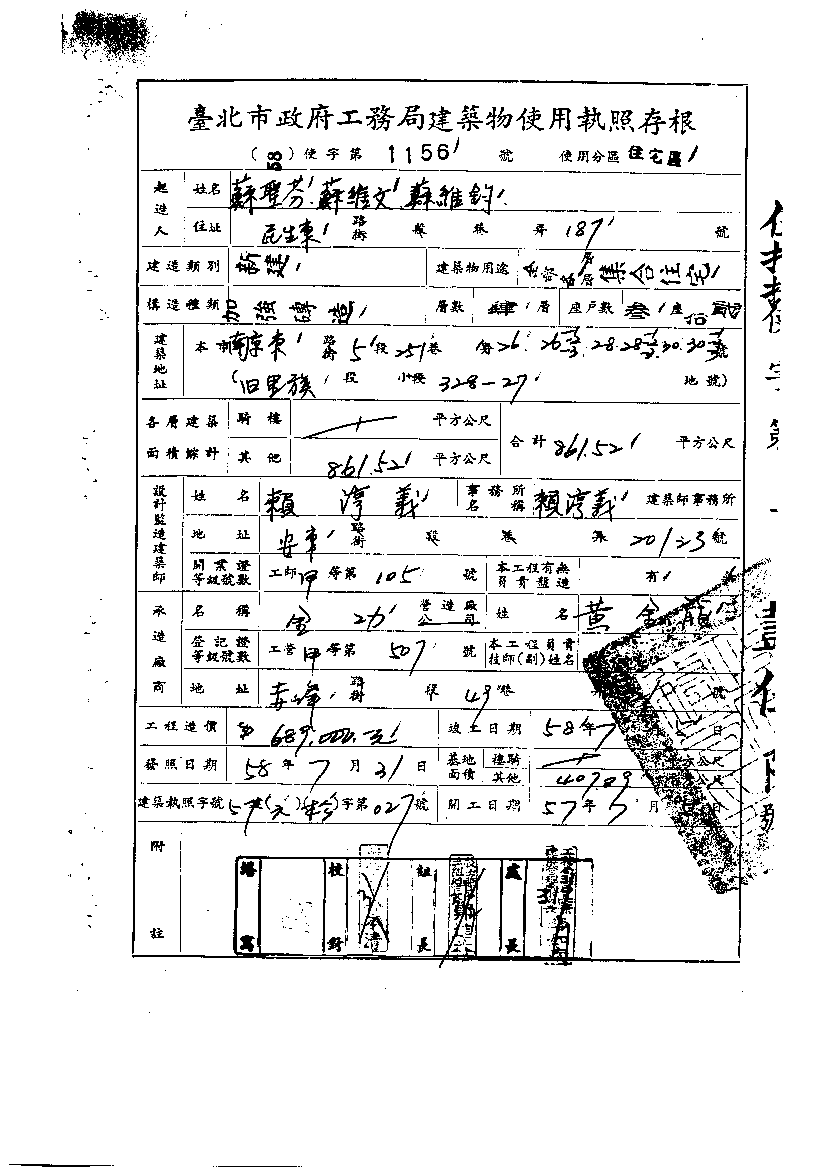 臺北市政府工務局建築物使用執照存根
(58)使字第 1156 號 使用分區 住宅區
起造人 姓名 蘇聖芬 蘇維文 蘇維鈞
住址 民生東 路街 段 巷 弄 187 號
建造類別 新建 建築物用途 全部各層 集合住宅
構造種類 加強磚造 層數 肆 層 座戶數 叁 座
建築地址 本市 南京東 路街 5 段 251 巷 弄 26 28 30 號
(旧 族 段 小段 328-27 地號)
各層建築面積綜計 騎樓 平方公尺 合計 861.52 平方公尺
其他 861.52 平方公尺
設計監造建築師 姓名 賴淳義 事務所名稱 賴淳義 建築師事務所
地址 安東 路街 段 巷 弄 20 號
開業證等級號數 工師 甲 等第 105 號 本工程有無負責監造 有
承造廠商 名稱 金 營造廠公司 姓名 黃金龍
登記證等級號數 工營 甲 等第 507 號 本工程負責技師(副)姓名
地址 赤峰 路街 段 49 巷 號
工程造價 $689,000元 竣工日期 58 年 7 日
發照日期 58 年 7 月 31 日 基地面積 騎樓 平方公尺
其他 407.89 平方公尺
建築執照字號 57 字第 027 號 開工日期 57 年 7 月 日
附註 繕寫 校對 組長 處長